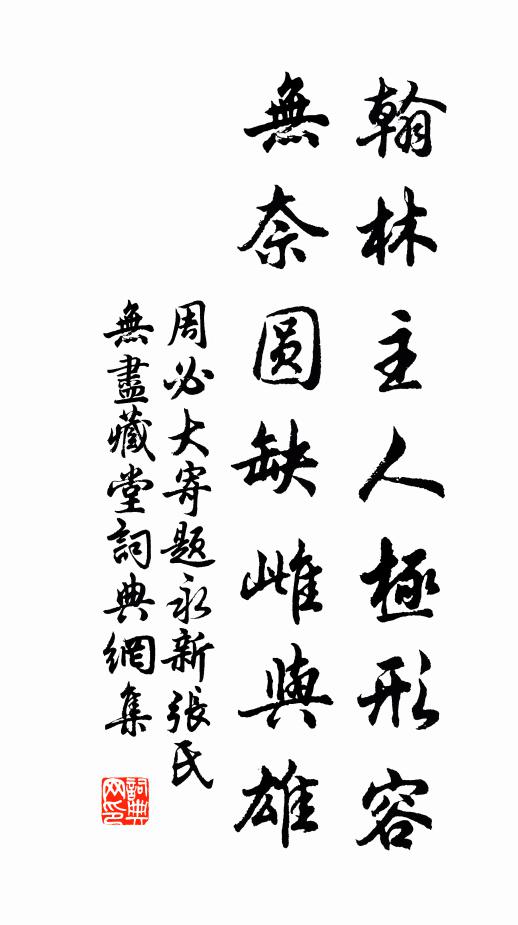 翰林主人極形容
無奈圓缺雌與雄
周必大寄題永新張氏
無盡藏堂詞典網集
詞典网印